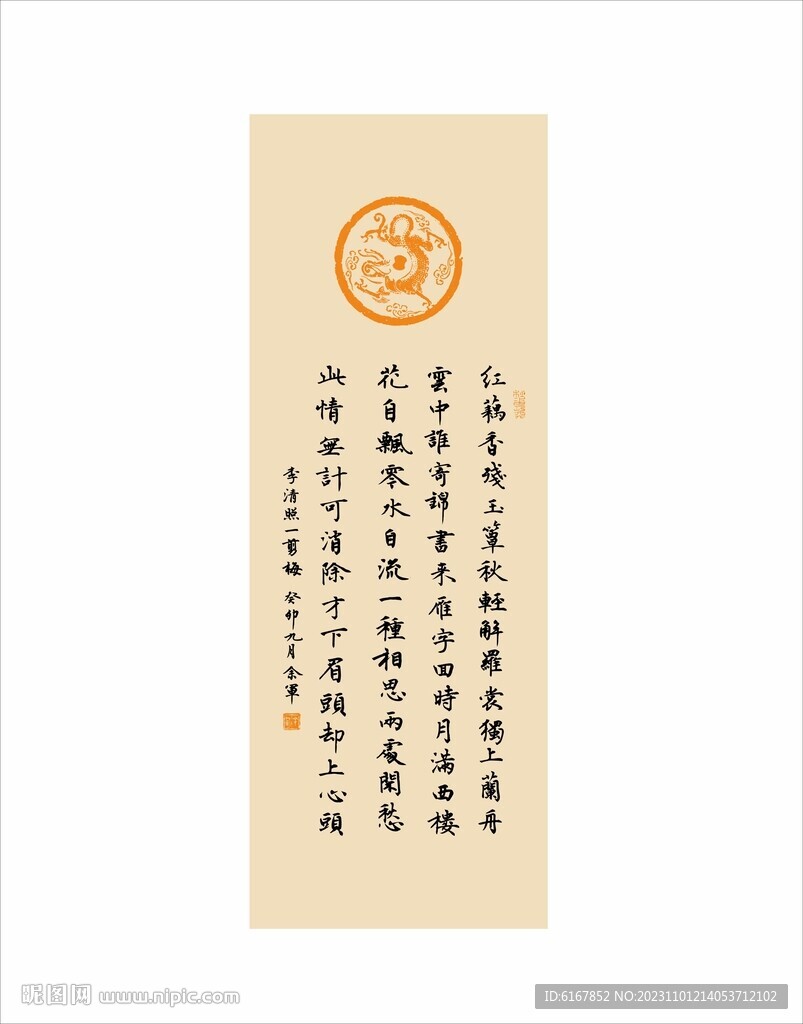 红藕香殘玉簟秋輕解羅裳獨上蘭舟
雲中誰寄錦書来雁字回時月滿西楼
花自飄零水自流一種相思兩處閑愁
此情無計可消除才下眉頭却上心頭
李清照一剪梅 癸卯九月余軍
昵图网 www.nipic.com
ID:6167852 NO:20231101214053712102